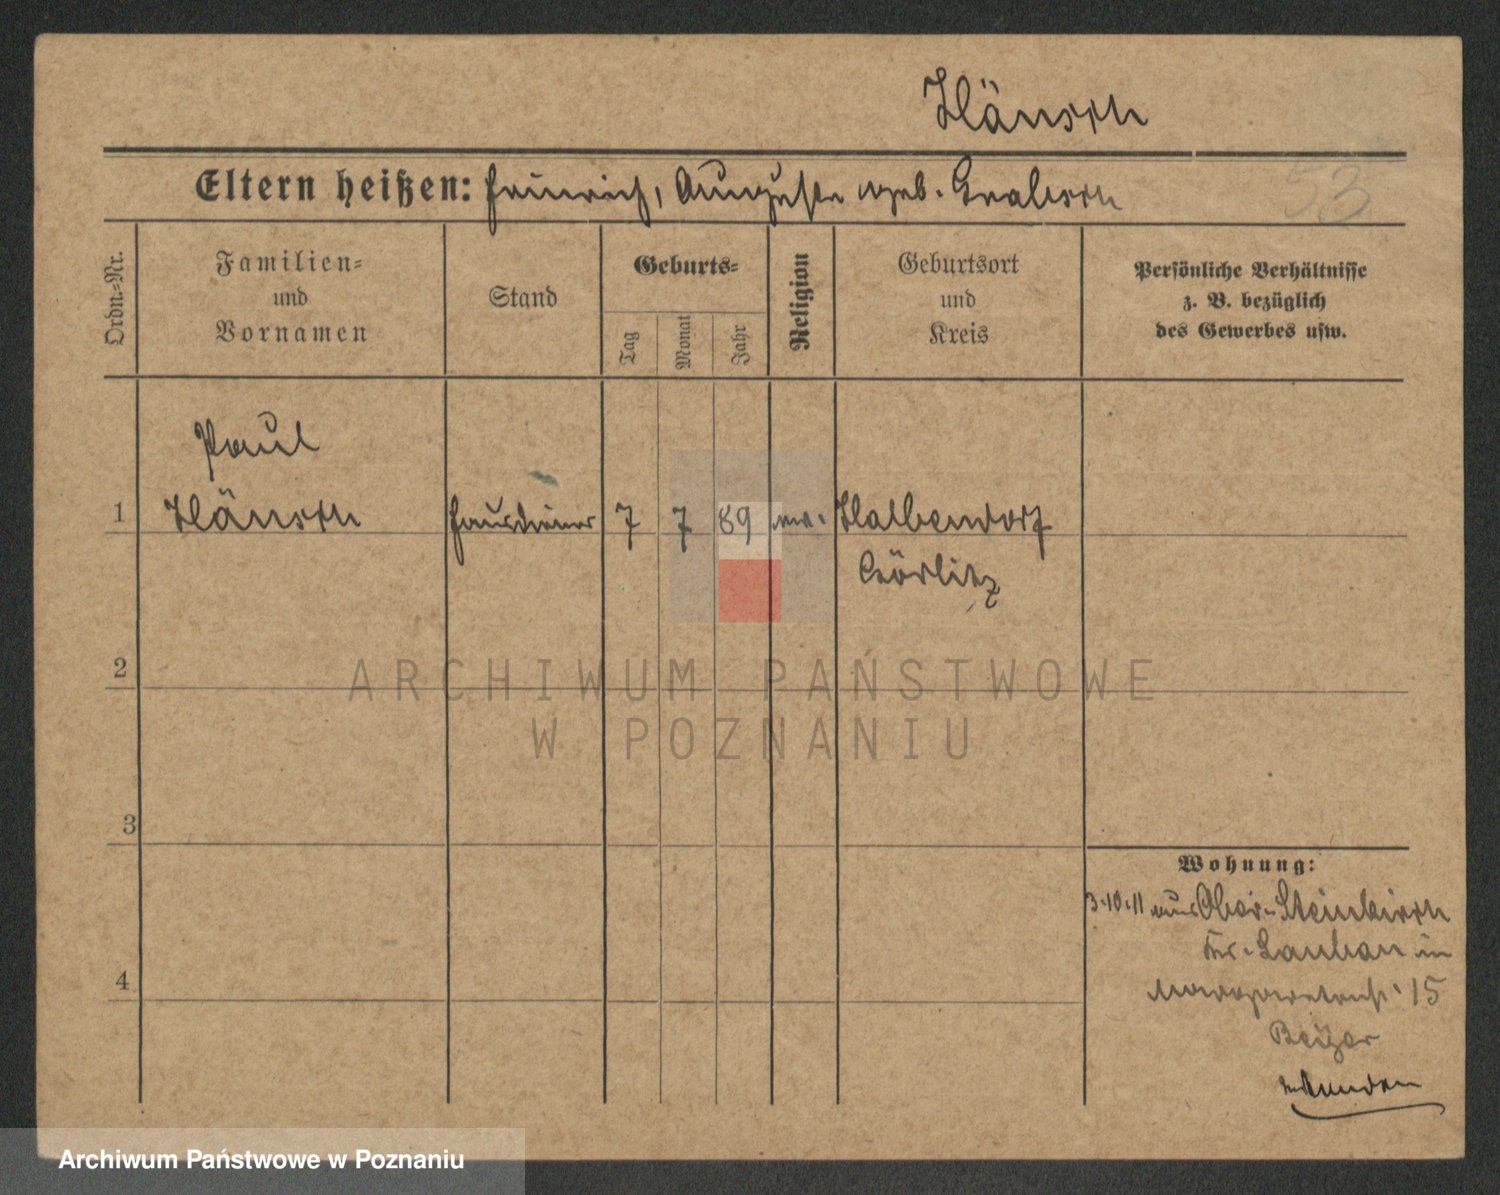 Hänsch
Eltern heißen: Heinrich, Auguste geb. Grabsch
53
Ordn.-Nr.
Familien-
und
Vornamen
Stand
Geburts-
Tag
Monat
Jahr
Religion
Geburtsort
und
Kreis
Persönliche Verhältnisse
z. B. bezüglich
des Gewerbes usw.
Paul
1 Hänsch Hausdiener 7 7 89 ev. Halbendorf
Görlitz
2
3
4
Wohnung:
3.10.11 aus Ober-Steinkirch
Kr. Lauban in
15
ARCHIWUM PAŃSTWOWE
W POZNANIU
Archiwum Państwowe w Poznaniu